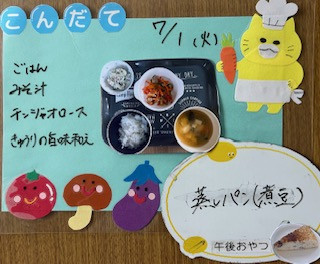 こんだて
7/1(火)
ごはん
みそ汁
チンジャオロース
きゅうりの旨味和え
蒸しパン(煮豆)
午後おやつ